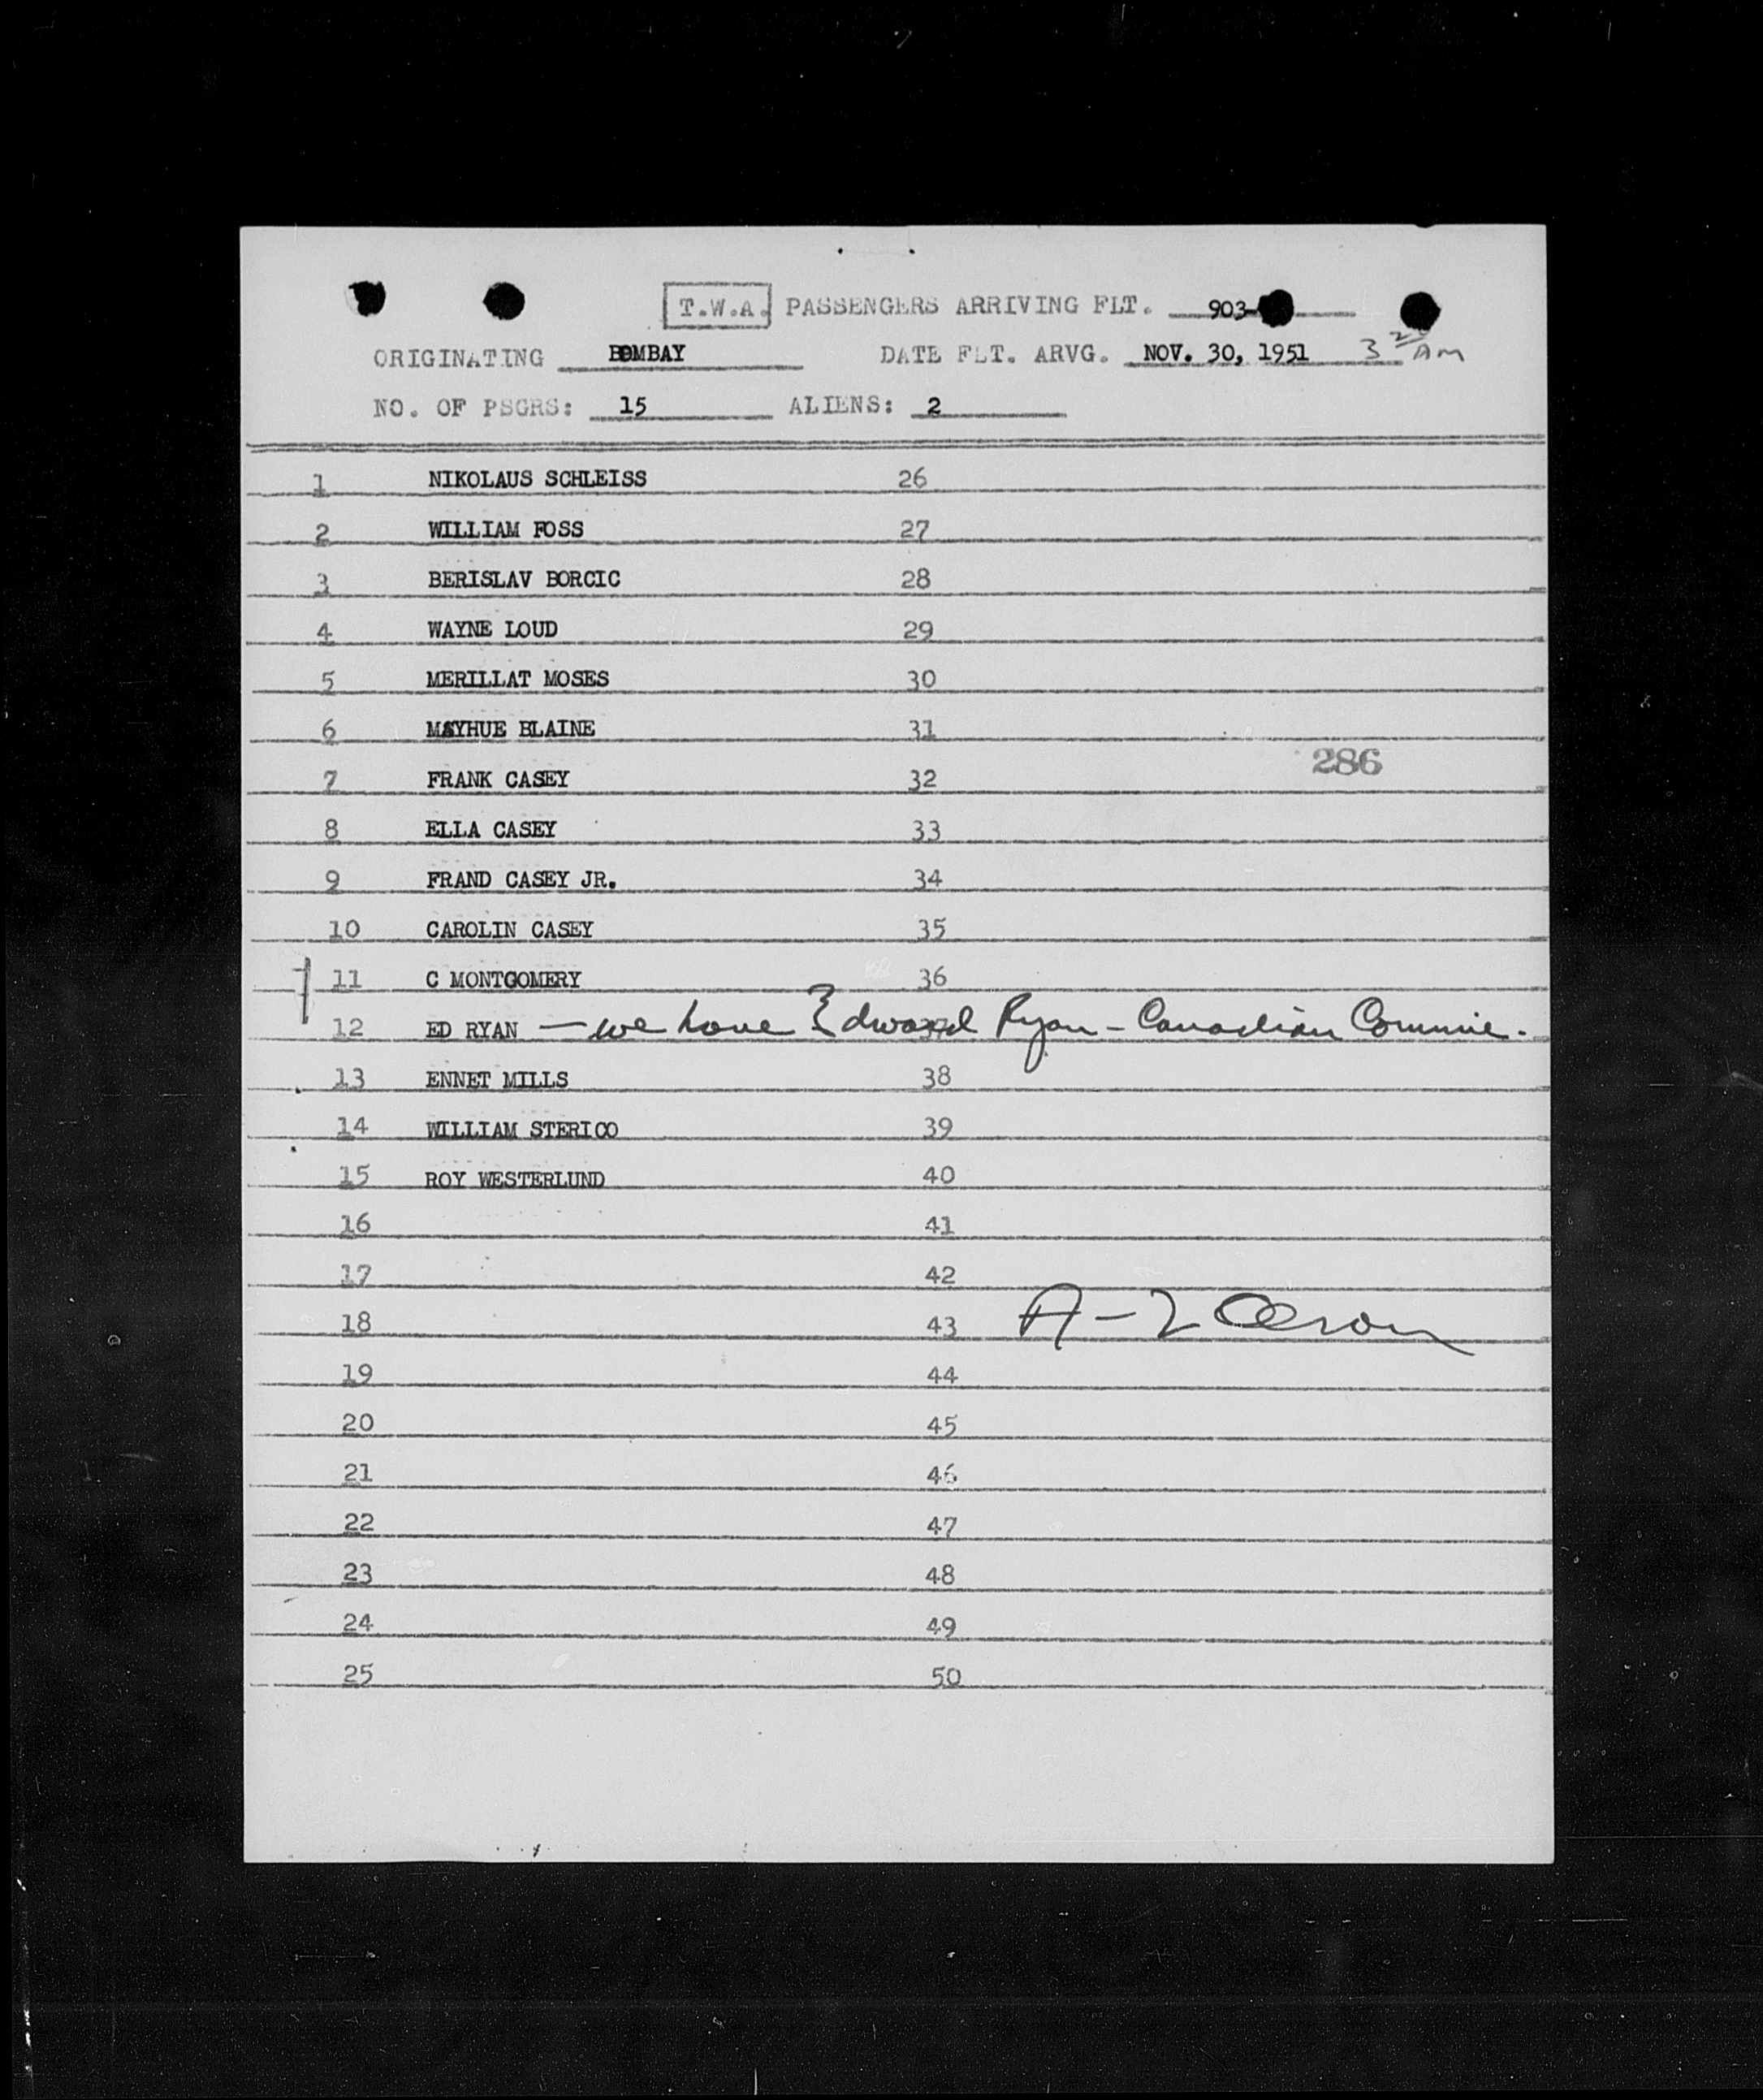 T.W.A. PASSENGERS ARRIVING FLT. 903-
ORIGINATING BOMBAY DATE FLT. ARVG. NOV. 30, 1951 3 20 AM
NO. OF PSGRS: 15 ALIENS: 2
1 NIKOLAUS SCHLEISS 26
2 WILLIAM FOSS 27
3 BERISLAV BORCIC 28
4 WAYNE LOUD 29
5 MERILLAT MOSES 30
6 MAYHUE BLAINE 31
286
7 FRANK CASEY 32
8 ELLA CASEY 33
9 FRAND CASEY JR. 34
10 CAROLIN CASEY 35
11 C MONTGOMERY 36
12 ED RYAN — we have Edward Ryan - Canadian Commie.
13 ENNET MILLS 38
14 WILLIAM STERICO 39
15 ROY WESTERLUND 40
16 41
17 42
18 43
19 44
20 45
21 46
22 47
23 48
24 49
25 50